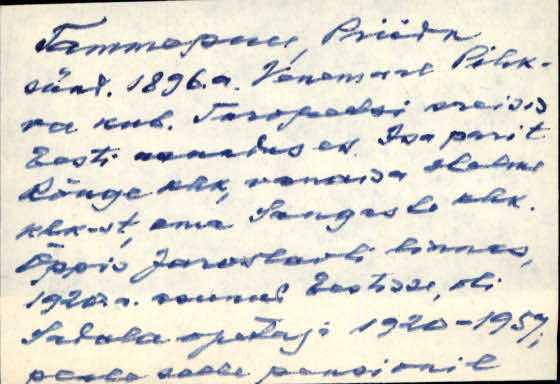 Tammepuu, Priidu
sünd. 1896.a. Venemaal Pihk-
va kub. Toropetsi kreisis
Eesti asunduses. Isa pärit
Rõuge khk, vanaisa
khk-st, ema Sangaste khk.
Õppis Jaroslavli linnas,
1920.a. saanud Eestisse, oli
Sadala õpetaja 1920-1957,
peale seda pensionil